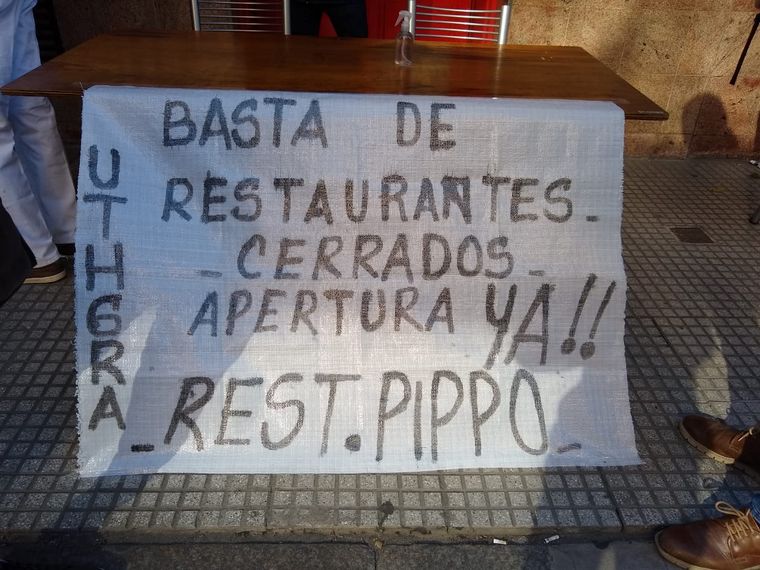 UTHGRA
BASTA DE
RESTAURANTES_
_CERRADOS_
APERTURA YA!!
_REST.PIPPO_